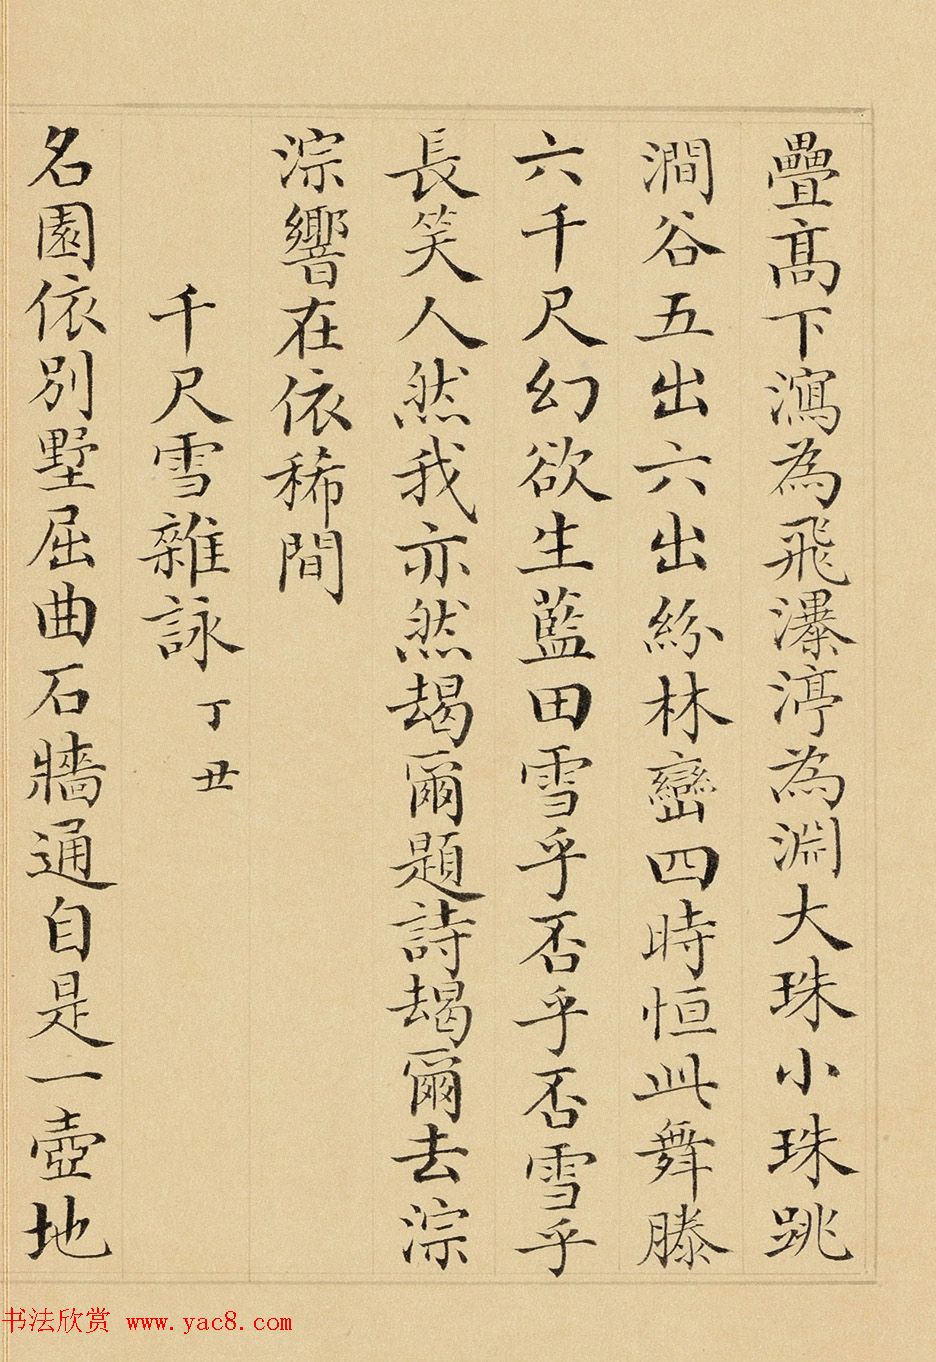 疊高下瀉為飛瀑渟為淵大珠小珠跳
澗谷五出六出紛林巒四時恒此舞滕
六千尺幻欲生藍田雪乎否乎否雪乎
長笑人然我亦然朅爾題詩朅爾去淙
淙響在依稀間
千尺雪雜詠 丁丑
名園依別墅屈曲石牆通自是一壺地
书法欣赏 www.yac8.com